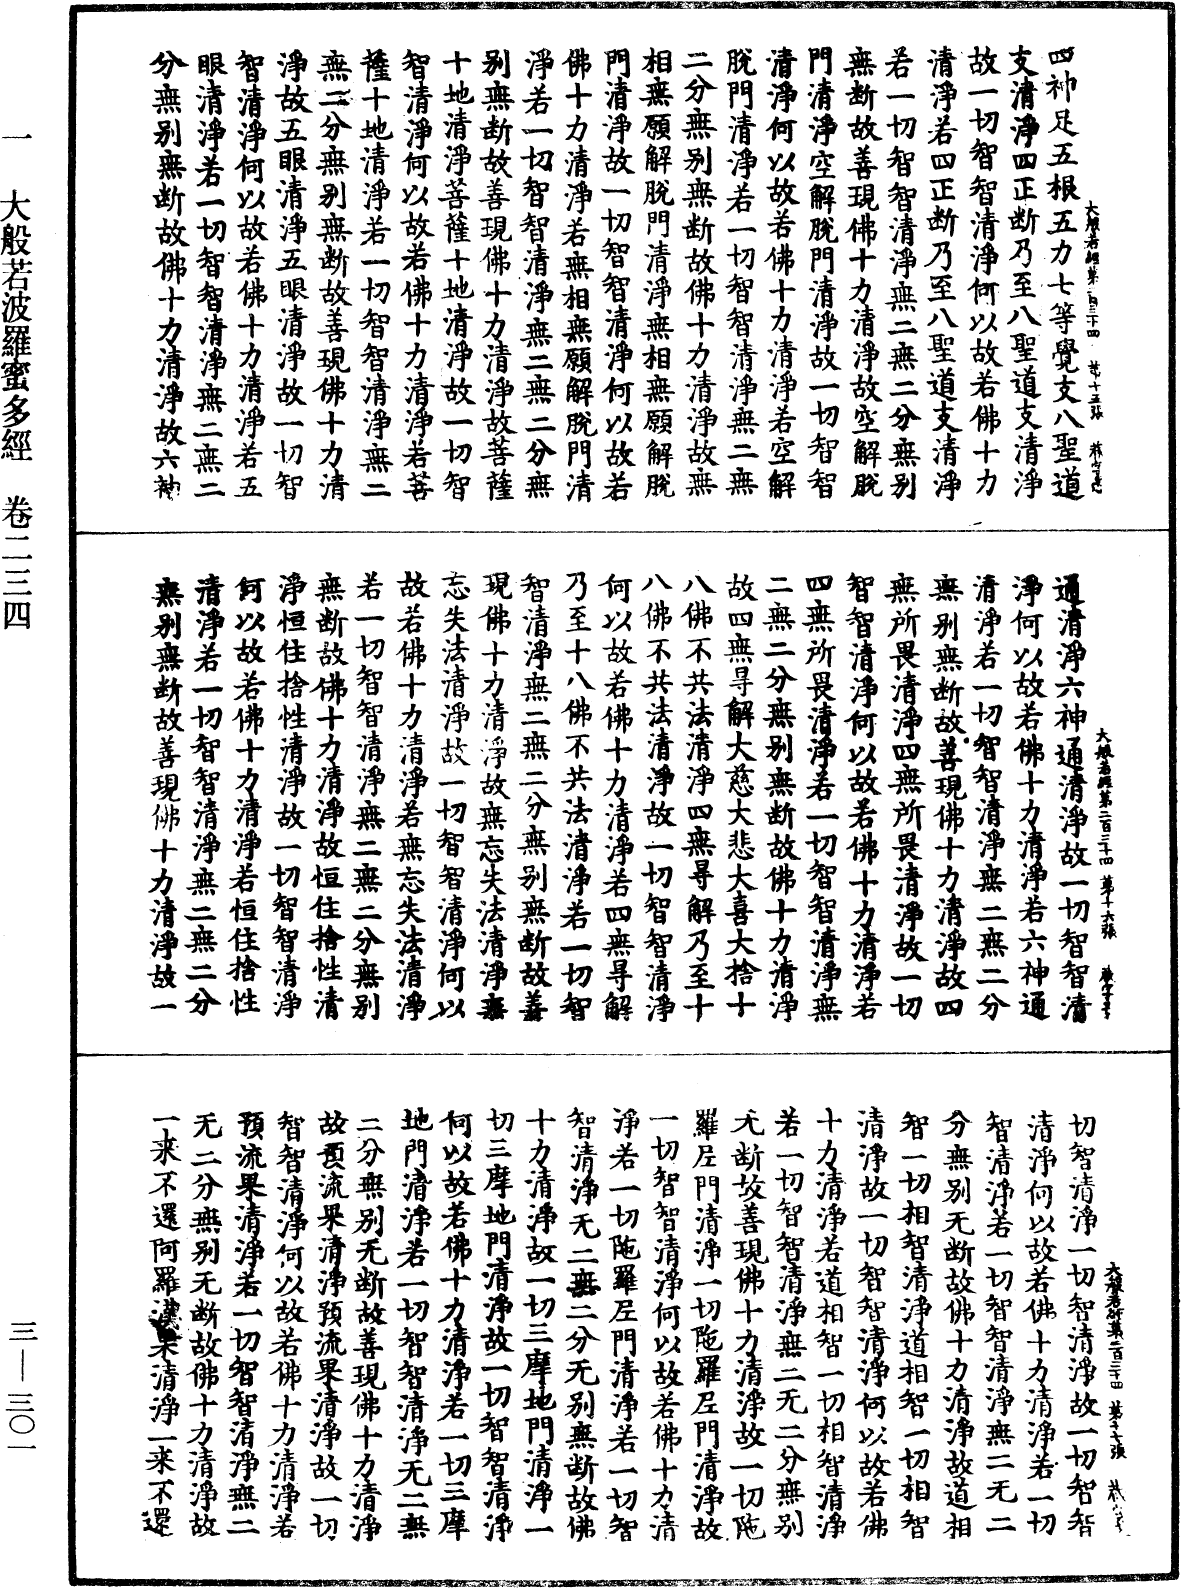 大般若經第二百三十四 第十五張
四神足五根五力七等覺支八聖道
支清淨四正斷乃至八聖道支清淨
故一切智智清淨何以故若佛十力
清淨若四正斷乃至八聖道支清淨
若一切智智清淨無二無二分無別
無斷故善現佛十力清淨故空解脫
門清淨空解脫門清淨故一切智智
清淨何以故若佛十力清淨若空解
脫門清淨若一切智智清淨無二無
二分無別無斷故佛十力清淨故無
相無願解脫門清淨無相無願解脫
門清淨故一切智智清淨何以故若
佛十力清淨若無相無願解脫門清
淨若一切智智清淨無二無二分無
別無斷故善現佛十力清淨故菩薩
十地清淨菩薩十地清淨故一切智
智清淨何以故若佛十力清淨若菩
薩十地清淨若一切智智清淨無二
無二分無別無斷故善現佛十力清
淨故五眼清淨五眼清淨故一切智
智清淨何以故若佛十力清淨若五
眼清淨若一切智智清淨無二無二
分無別無斷故佛十力清淨故六神
大般若經第二百三十四 第十六張
通清淨六神通清淨故一切智智清
淨何以故若佛十力清淨若六神通
清淨若一切智智清淨無二無二分
無別無斷故善現佛十力清淨故四
無所畏清淨四無所畏清淨故一切
智智清淨何以故若佛十力清淨若
四無所畏清淨若一切智智清淨無
二無二分無別無斷故佛十力清淨
故四無㝵解大慈大悲大喜大捨十
八佛不共法清淨四無㝵解乃至十
八佛不共法清淨故一切智智清淨
何以故若佛十力清淨若四無㝵解
乃至十八佛不共法清淨若一切智
智清淨無二無二分無別無斷故善
現佛十力清淨故無忘失法清淨無
忘失法清淨故一切智智清淨何以
故若佛十力清淨若無忘失法清淨
若一切智智清淨無二無二分無別
無斷故佛十力清淨故恒住捨性清
淨恒住捨性清淨故一切智智清淨
何以故若佛十力清淨若恒住捨性
清淨若一切智智清淨無二無二分
無別無斷故善現佛十力清淨故一
大般若經第二百三十四 第十七張
切智清淨一切智清淨故一切智智
清淨何以故若佛十力清淨若一切
智清淨若一切智智清淨無二无二
分無別无斷故佛十力清淨故道相
智一切相智清淨道相智一切相智
清淨故一切智智清淨何以故若佛
十力清淨若道相智一切相智清淨
若一切智智清淨無二无二分無別
无斷故善現佛十力清淨故一切陁
羅尼門清淨一切陁羅尼門清淨故
一切智智清淨何以故若佛十力清
淨若一切陁羅尼門清淨若一切智
智清淨无二無二分无別無斷故佛
十力清淨故一切三摩地門清淨一
切三摩地門清淨故一切智智清淨
何以故若佛十力清淨若一切三摩
地門清淨若一切智智清淨无二無
二分無別无斷故善現佛十力清淨
故預流果清淨預流果清淨故一切
智智清淨何以故若佛十力清淨若
預流果清淨若一切智智清淨無二
无二分無別无斷故佛十力清淨故
一来不還阿羅漢果清淨一來不還
一 大般若波羅蜜多經 卷二三四
三—三〇一